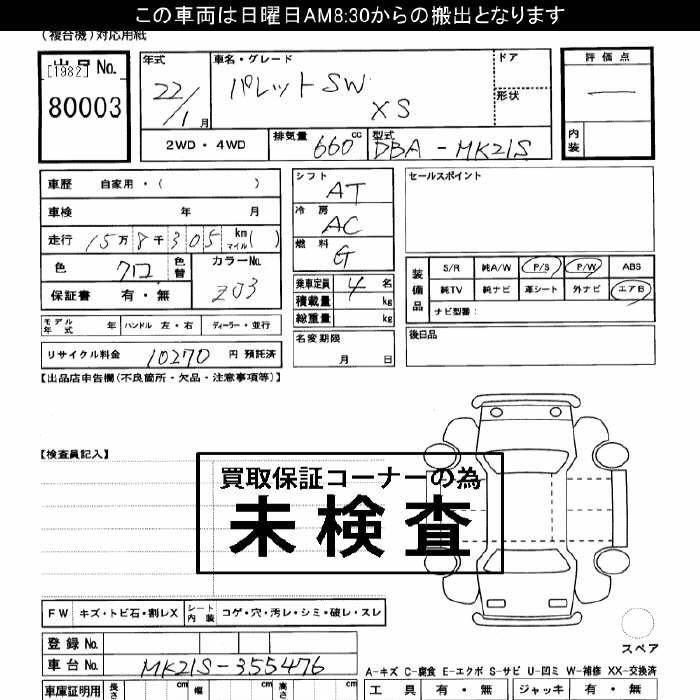 この車両は日曜日AM8:30からの搬出となります
(複合機)対応用紙
出品No.
[1982]
80003
年式
22/1月
車名・グレード
パレットSW
XS
ドア
形状
評価点
―
内装
2WD・4WD
排気量 660cc
型式 DBA-MK21S
車歴 自家用・( )
車検 年 月
走行 15万8千305 km マイル( )
色 クロ 色替
カラーNo.
Z03
保証書 有・無
シフト
AT
冷房
AC
燃料
G
乗車定員 4名
積載量 kg
総重量 kg
セールスポイント
装備品
S/R 純A/W P/S P/W ABS
純TV 純ナビ 革シート 外ナビ エアB
ナビ型番:
モデル年式 年 ハンドル 左・右 ディーラー・並行
名変期限
月 日
後日品
リサイクル料金 10270 円 預託済
【出品店申告欄(不良箇所・欠品・注意事項等)】
【検査員記入】
買取保証コーナーの為
未検査
FW キズ・トビ石・割レX シート内装 コゲ・穴・汚レ・シミ・破レ・スレ
スペア
登録No.
車台No. MK21S-355476
A-キズ C-腐食 E-エクボ S-サビ U-凹ミ W-補修 XX-交換済
車庫証明用 長さ cm 幅 cm 高さ cm
工具 有・無 ジャッキ 有・無